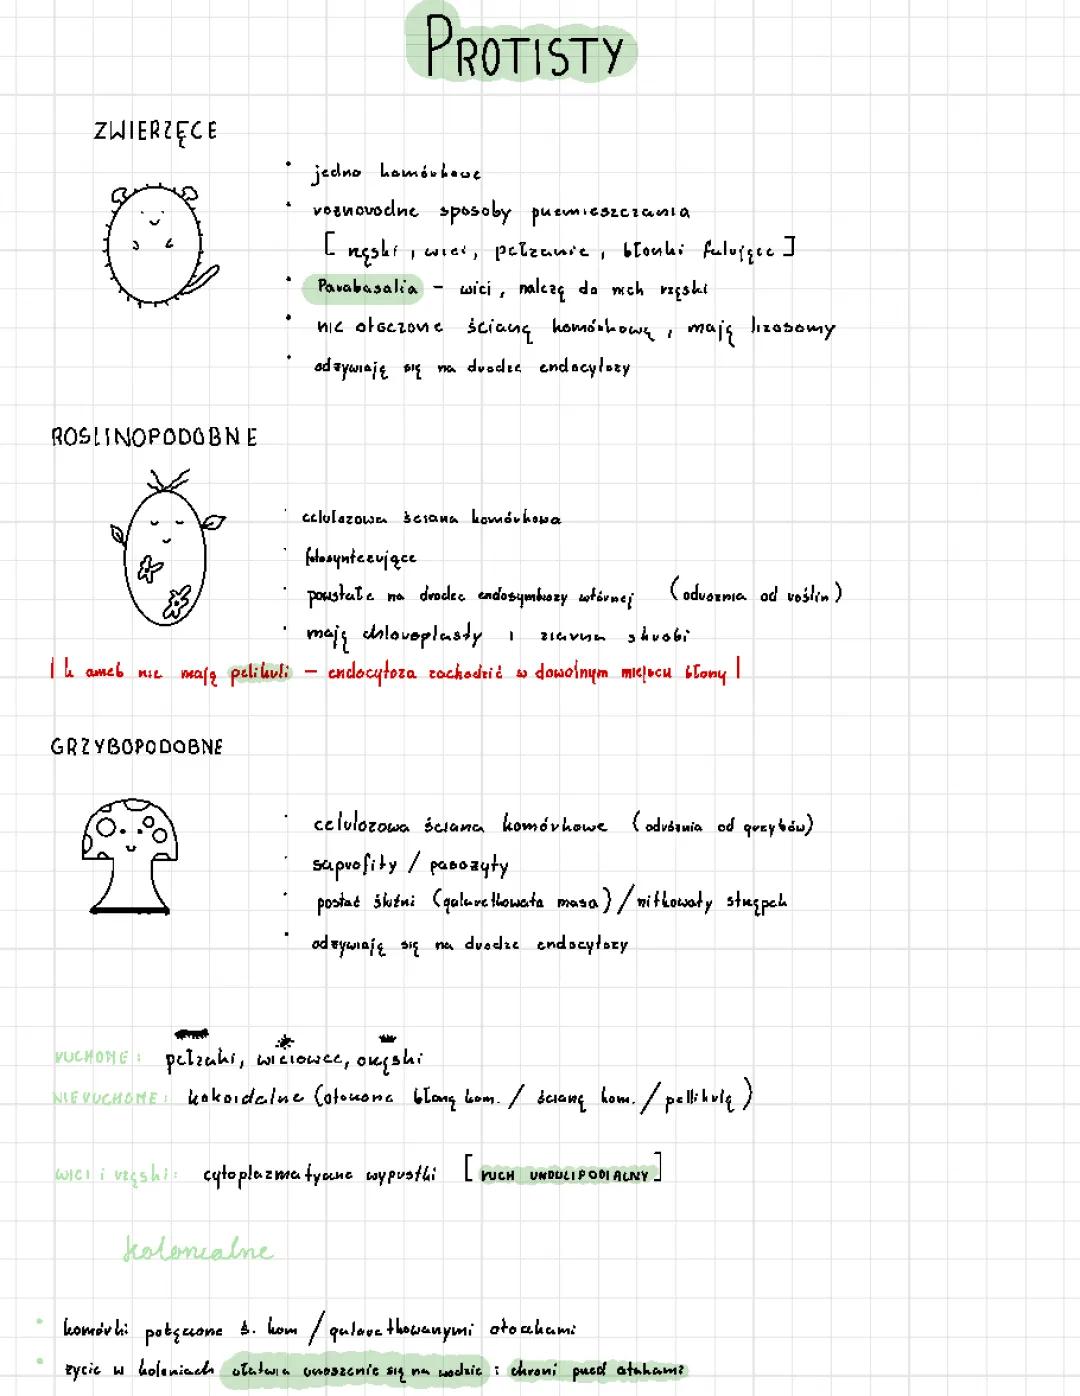 PROTISTY
ZWIERZĘCE
jedno komórkowe
różnorodne sposoby przemieszczania
[ rzęski, wici, pełzanie, błonki falujące ]
Parabasalia – wici, należą do nich rzęski
nie otoczone ścianą komórkową, mają lizosomy
odżywiają się na drodze endocytozy
ROSLINOPODOBNE
celulozowa ściana komórkowa
fotosyntezujące
powstałe na drodze endosymbiozy wtórnej (odróżnia od roślin)
mają chloroplasty i ziarna skrobi
! u ameb nie mają pelikuli – endocytoza zachodzić w dowolnym miejscu błony !
GRZYBOPODOBNE
celulozowa ściana komórkowe (odróżnia od grzybów)
saprofity / pasożyty
postać śluźni (galaretkowata masa) / nitkowaty strzępek
odżywiają się na drodze endocytozy
RUCHOME: pełzaki, wiciowce, orzęski
NIERUCHOME: kokoidalne (otoczone błoną kom. / ścianą kom. / pellikulą)
WICI i rzęski: cytoplazmatyczne wypustki [RUCH UNDULIPODIALNY]
kolonialne
komórki połączone ś. kom / galaretkowanymi otoczkami
życie w koloniach ułatwia unoszenie się na wodzie i chroni przed atakami